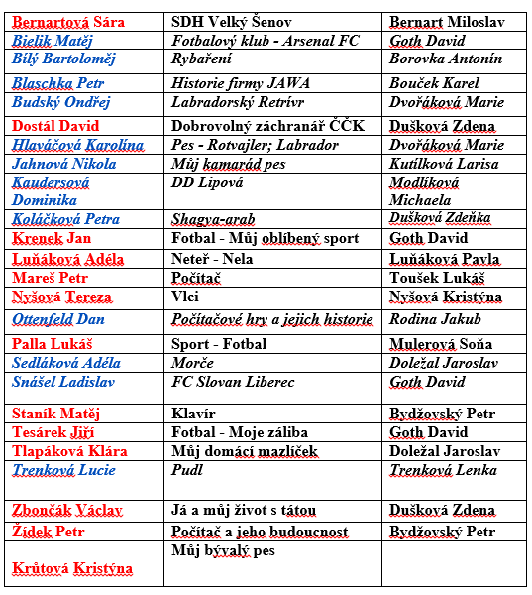 Bernartová Sára SDH Velký Šenov Bernart Miloslav
Bielik Matěj Fotbalový klub - Arsenal FC Goth David
Bílý Bartoloměj Rybaření Borovka Antonín
Blaschka Petr Historie firmy JAWA Bouček Karel
Budský Ondřej Labradorský Retrívr Dvořáková Marie
Dostál David Dobrovolný záchranář ČČK Dušková Zdena
Hlaváčová Karolína Pes - Rotvajler; Labrador Dvořáková Marie
Jahnová Nikola Můj kamarád pes Kutílková Larisa
Kaudersová DD Lipová Modlíková
Dominika Michaela
Koláčková Petra Shagya-arab Dušková Zdeňka
Krenek Jan Fotbal - Můj oblíbený sport Goth David
Luňáková Adéla Neteř - Nela Luňáková Pavla
Mareš Petr Počítač Toušek Lukáš
Nyšová Tereza Vlci Nyšová Kristýna
Ottenfeld Dan Počítačové hry a jejich historie Rodina Jakub
Palla Lukáš Sport - Fotbal Mulerová Soňa
Sedláková Adéla Morče Doležal Jaroslav
Snášel Ladislav FC Slovan Liberec Goth David
Staník Matěj Klavír Bydžovský Petr
Tesárek Jiří Fotbal - Moje záliba Goth David
Tlapáková Klára Můj domácí mazlíček Doležal Jaroslav
Trenková Lucie Pudl Trenková Lenka
Zbončák Václav Já a můj život s tátou Dušková Zdena
Žídek Petr Počítač a jeho budoucnost Bydžovský Petr
Můj bývalý pes
Krůtová Kristýna